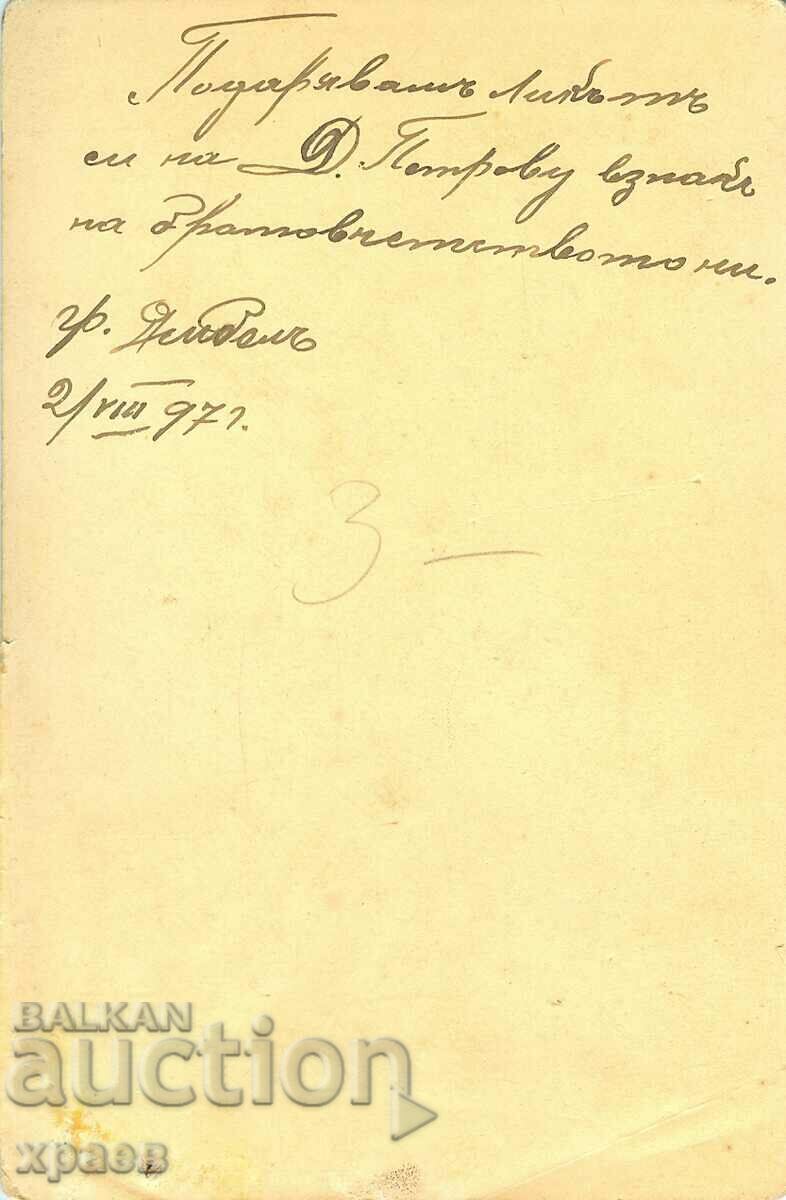 Подарявамъ Ликътъ
си на Д. Петрову взнакъ
на братовчетството ни.
гр.
2/VIII 97 г.
3 —
BALKAN
auction
храев